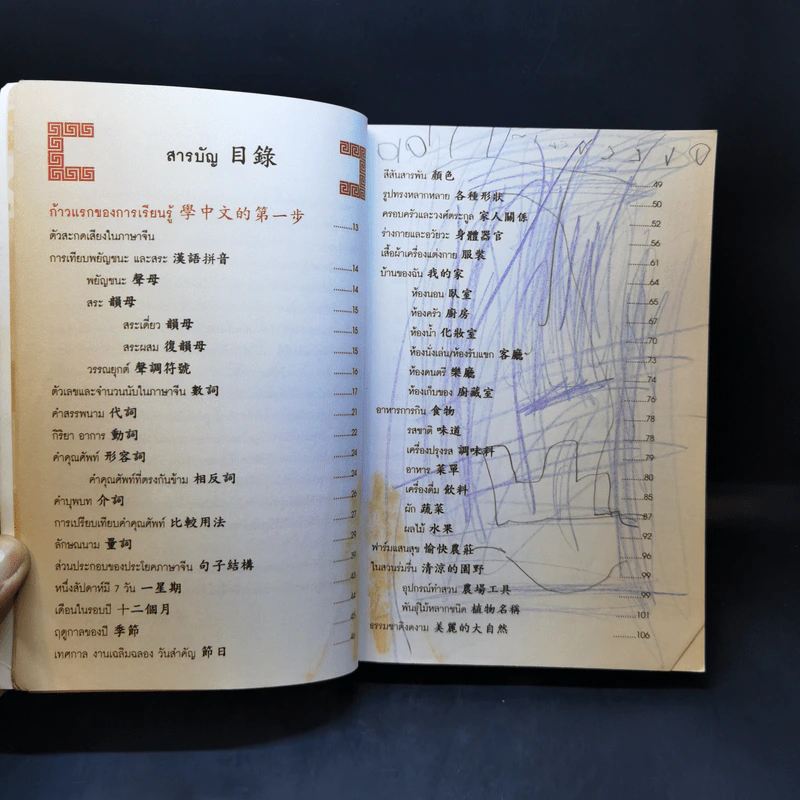 สารบัญ 目錄
ก้าวแรกของการเรียนรู้ 學中文的第一步 ..........13
ตัวสะกดเสียงในภาษาจีน
การเทียบพยัญชนะ และสระ 漢語拼音 ..........14
พยัญชนะ 聲母 ..........14
สระ 韻母 ..........15
สระเดี่ยว 韻母 ..........15
สระผสม 復韻母 ..........15
วรรณยุกต์ 聲調符號 ..........16
ตัวเลขและจำนวนนับในภาษาจีน 數詞 ..........17
คำสรรพนาม 代詞 ..........21
กิริยา อาการ 動詞 ..........22
คำคุณศัพท์ 形容詞 ..........24
คำคุณศัพท์ที่ตรงกันข้าม 相反詞 ..........24
คำบุพบท 介詞 ..........26
การเปรียบเทียบคำคุณศัพท์ 比較用法 ..........27
ลักษณนาม 量詞 ..........29
ส่วนประกอบของประโยคภาษาจีน 句子結構 ..........39
หนึ่งสัปดาห์มี 7 วัน 一星期 ..........43
เดือนในรอบปี 十二個月 ..........44
ฤดูกาลของปี 季節 ..........45
เทศกาล งานเฉลิมฉลอง วันสำคัญ 節日 ..........46
สีสันสารพัน 顏色 ..........49
รูปทรงหลากหลาย 各種形狀 ..........50
ครอบครัวและวงศ์ตระกูล 家人關係 ..........52
ร่างกายและอวัยวะ 身體器官 ..........56
เสื้อผ้าเครื่องแต่งกาย 服裝 ..........61
บ้านของฉัน 我的家 ..........64
ห้องนอน 臥室 ..........65
ห้องครัว 廚房 ..........67
ห้องน้ำ 化妝室 ..........70
ห้องนั่งเล่น/ห้องรับแขก 客廳 ..........72
ห้องดนตรี 樂廳 ..........74
ห้องเก็บของ 廚藏室 ..........76
อาหารการกิน 食物 ..........78
รสชาติ 味道 ..........78
เครื่องปรุงรส 調味料 ..........79
อาหาร 菜單 ..........80
เครื่องดื่ม 飲料 ..........85
ผัก 蔬菜 ..........87
ผลไม้ 水果 ..........92
ฟาร์มแสนสุข 愉快農莊 ..........96
ในสวนร่มรื่น 清涼的園野 ..........99
อุปกรณ์ทำสวน 農場工具 ..........99
พันธุ์ไม้หลากชนิด 植物名稱 ..........101
ธรรมชาติงดงาม 美麗的大自然 ..........106